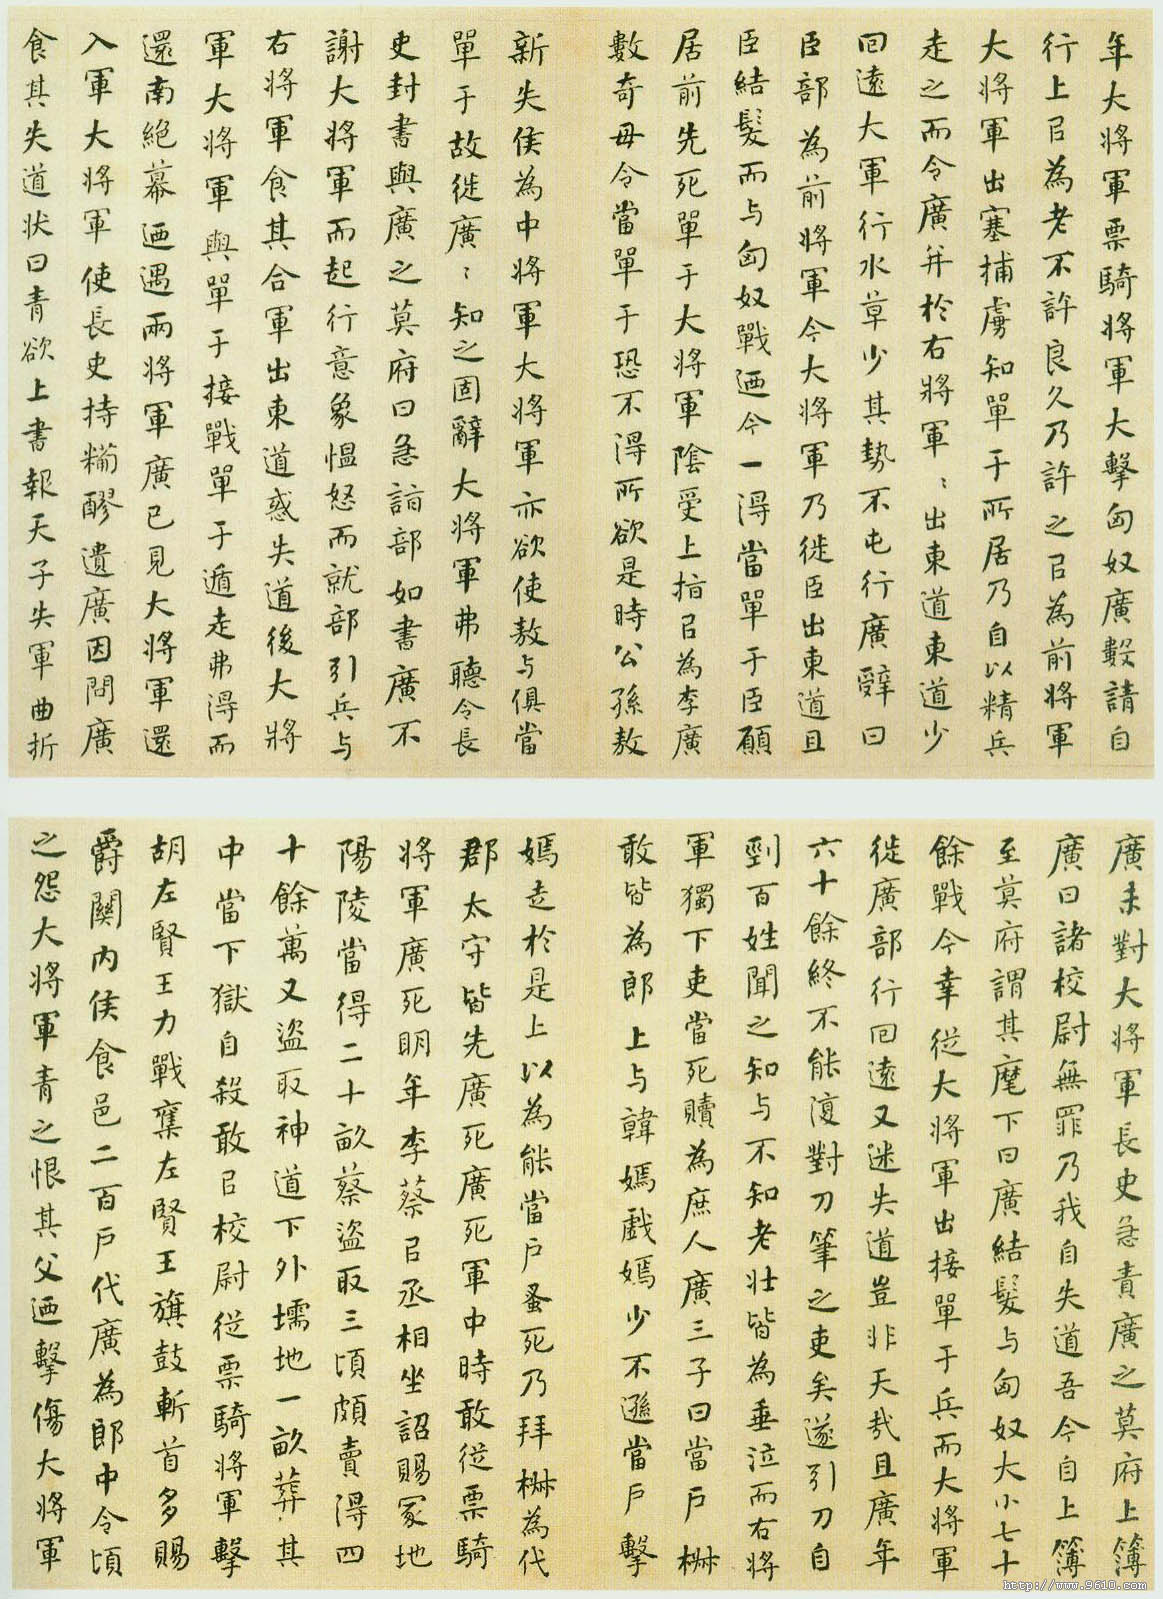 年大將軍票騎將軍大擊匈奴廣數請自
行上㠯為老不許良久乃許之㠯為前將軍
大將軍出塞捕虜知單于所居乃自以精兵
走之而令廣并於右將軍〻出東道東道少
回遠大軍行水草少其勢不屯行廣辭曰
臣部為前將軍今大將軍乃徙臣出東道且
臣結髮而与匈奴戰迺今一得當單于臣願
居前先死單于大將軍陰受上指㠯為李廣
數奇毋令當單于恐不得所欲是時公孫敖
新失侯為中將軍大將軍亦欲使敖与俱當
單于故徙廣〻知之固辭大將軍弗聽令長
史封書與廣之莫府曰急詣部如書廣不
謝大將軍而起行意象愠怒而就部引兵与
右將軍食其合軍出東道惑失道後大將
軍大將軍與單于接戰單于遁走弗得而
還南絕幕迺遇兩將軍廣已見大將軍還
入軍大將軍使長史持糒醪遺廣因問廣
食其失道狀曰青欲上書報天子失軍曲折
廣未對大將軍長史急責廣之莫府上簿
廣曰諸校尉無罪乃我自失道吾今自上簿
至莫府謂其麾下曰廣結髮与匈奴大小七十
餘戰今幸從大將軍出接單于兵而大將軍
徙廣部行回遠又迷失道豈非天哉且廣年
六十餘終不能復對刀筆之吏矣遂引刀自
剄百姓聞之知与不知老壯皆為垂泣而右將
軍獨下吏當死贖為庶人廣三子曰當戶椒
敢皆為郎上与韓嫣戲嫣少不遜當戶擊
嫣走於是上以為能當戶蚤死乃拜椒為代
郡太守皆先廣死廣死軍中時敢從票騎
將軍廣死明年李蔡㠯丞相坐詔賜冢地
陽陵當得二十畝蔡盜取三頃頗賣得四
十餘萬又盜取神道下外壖地一畝葬其
中當下獄自殺敢㠯校尉從票騎將軍擊
胡左賢王力戰奪左賢王旗鼓斬首多賜
爵關內侯食邑二百戶代廣為郎中令頃
之怨大將軍青之恨其父迺擊傷大將軍
http://www.9610.com/